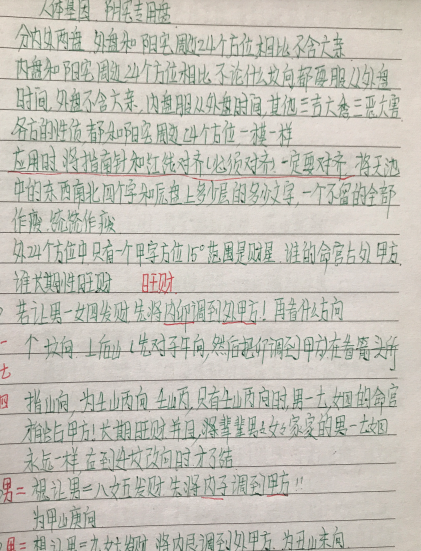 人体基因 阴宅专用盘
分内外两盘 外盘和阳宅周边24个方位相比不含六亲
内盘和阳宅周边24个方位相比不论什么坟向都要服从外盘
时间,外盘不含六亲,内盘服从外盘时间,其他三吉六秀三恶六害
各方的性质都和阳宅周边24个方位一模一样
应用时将指南针和红线对齐(必须对齐)一定要对齐 将天池
中的东西南北四个字和底盘上多少层的多少文字,一个不留的全部
作废 统统作废
外24个方位中只有一个甲字方位15°范围是财星 谁的命宫占外甲方,
谁长期性旺财 旺财
若让男一女四发财先将内卯调到外甲方!再看什么方向
一个坟向 上后山(先对子午向,然后把卯调到甲方)在看箭头所
七
四 指山向,为壬山丙向 壬山丙,只有壬山丙向时,男一七女四的命宫
才能占甲方!长期旺财并且,将辈辈男女家的男一七女四
永远一样,右到坟改向时才了结
男二 想让男二八女五发财 先将内子调到甲方!!
为甲山庚向
男三 想让男三九女六发财 将内 调到外甲方 为丑山未向